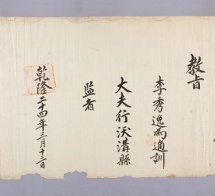 教旨
李秀逸為通訓
大夫行沃溝縣
監者
乾隆二十四年三月十三日